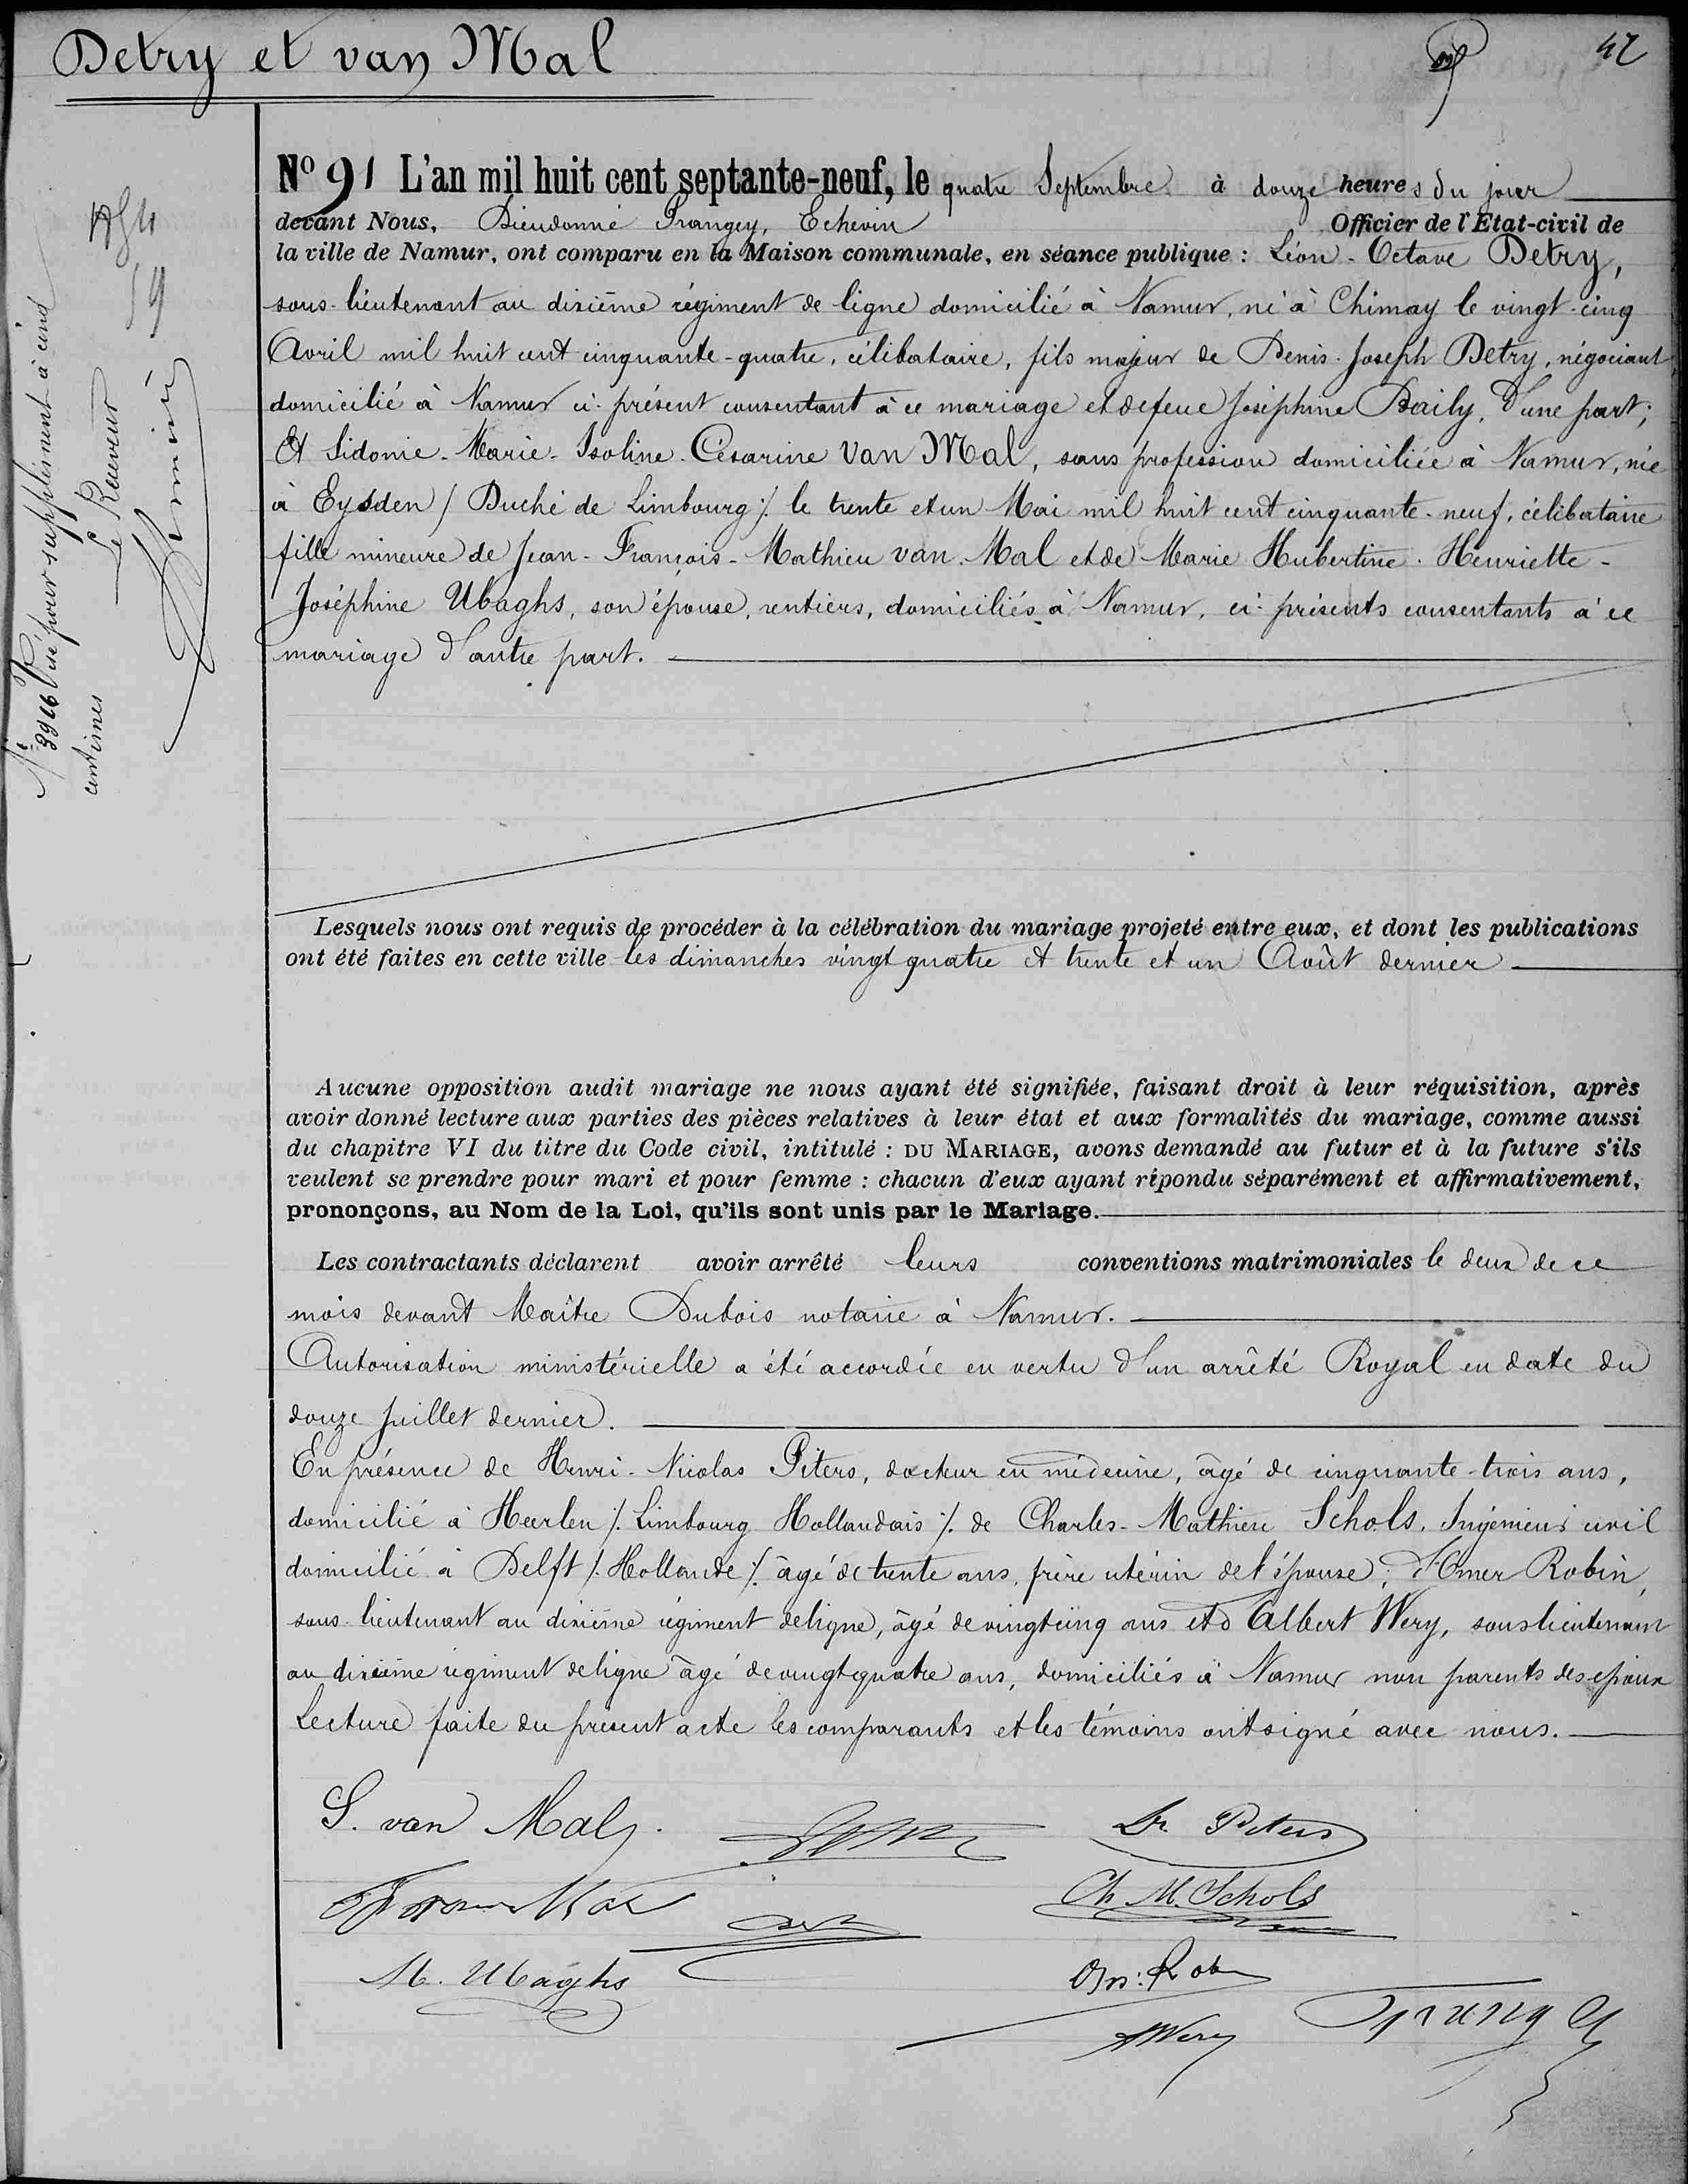 Detry et van Mal
42
N° 91 L'an mil huit cent septante-neuf, le quatre Septembre à douze heures du jour
devant Nous, Dieudonné Prangey, Echevin Officier de l'Etat-civil de
la ville de Namur, ont comparu en la Maison communale, en séance publique : Léon-Octave Detry,
sous-lieutenant au dixième régiment de ligne domicilié à Namur, né à Chimay le vingt-cinq
Avril mil huit cent cinquante-quatre, célibataire, fils majeur de Denis-Joseph Detry, négociant
domicilié à Namur ci-présent consentant à ce mariage et de feue Joséphine Baily, d'une part;
Et Sidonie-Marie-Isoline-Césarine Van Mal, sans profession domiciliée à Namur, née
à Eysden /Duché de Limbourg/. le trente et un Mai mil huit cent cinquante-neuf, célibataire
fille mineure de Jean-François-Mathieu van Mal et de Marie Hubertine-Henriette-
Joséphine Ubaghs, son épouse, rentiers, domiciliés à Namur, ci-présents consentants à ce
mariage d'autre part.
Lesquels nous ont requis de procéder à la célébration du mariage projeté entre eux, et dont les publications
ont été faites en cette ville les dimanches vingt quatre et trente et un Août dernier
Aucune opposition audit mariage ne nous ayant été signifiée, faisant droit à leur réquisition, après
avoir donné lecture aux parties des pièces relatives à leur état et aux formalités du mariage, comme aussi
du chapitre VI du titre du Code civil, intitulé : DU MARIAGE, avons demandé au futur et à la future s'ils
veulent se prendre pour mari et pour femme : chacun d'eux ayant répondu séparément et affirmativement,
prononçons, au Nom de la Loi, qu'ils sont unis par le Mariage.
Les contractants déclarent avoir arrêté leurs conventions matrimoniales le deux de ce
mois devant Maître Dubois notaire à Namur.
Autorisation ministérielle a été accordée en vertu d'un arrêté Royal en date du
douze Juillet dernier.
En présence de Henri-Nicolas Piters, docteur en médecine, âgé de cinquante-trois ans,
domicilié à Heerlen /. Limbourg Hollandais /. de Charles-Mathieu Schols, Ingénieur civil
domicilié à Delft /. Hollande /. âgé de trente ans, frère utérin de l'épouse; d'Omer Robin,
sous-lieutenant au dixième régiment de ligne, âgé de vingt cinq ans et d'Albert Wery, sous lieutenant
au dixième régiment de ligne âgé de vingt quatre ans, domiciliés à Namur non parents des époux
Lecture faite du présent acte les comparants et les témoins ont signé avec nous.
S. van Mal.
Dr Piters
Ch. M. Schols
M. Ubaghs
Om: Robin
AWery
Prangey
N° 3926 Visé pour supplément à cinq
centimes
Le Receveur